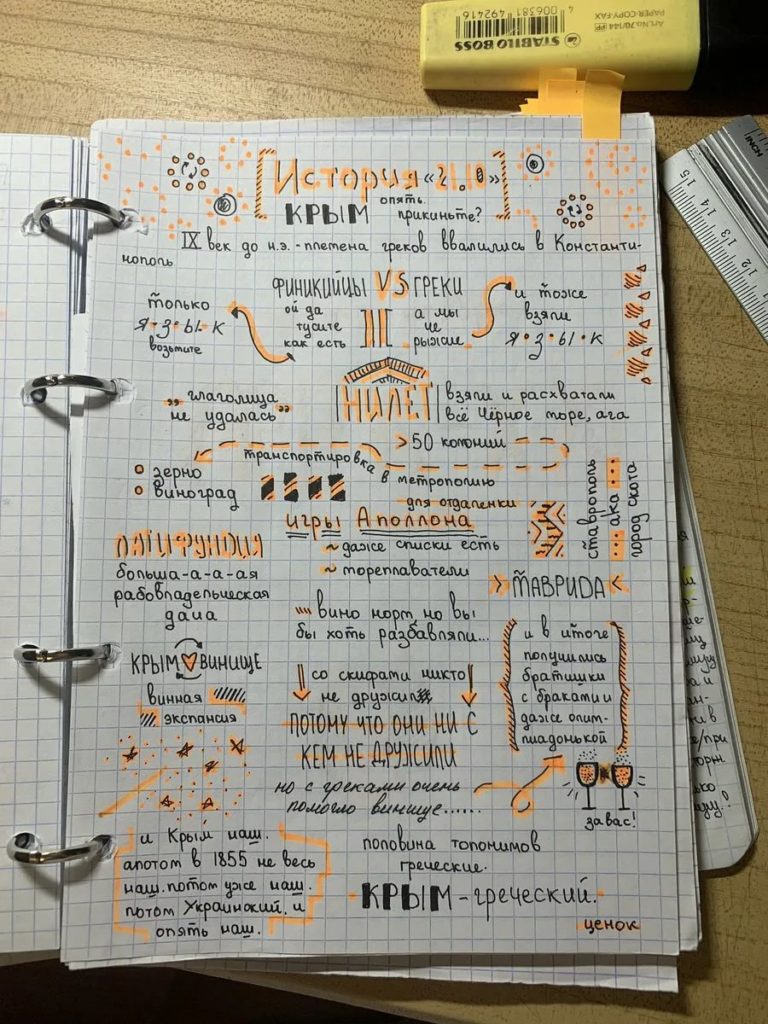 4 006381 492416
STABILO BOSS
Art.No.70/144
PAPER-COPY-FAX
INCH
15 14 13 12
История «21.10»
КРЫМ опять. прикиньте?
IX век до н.э. - племена греков ввалились в Константи-
нополь
ФИНИКИЙЦЫ VS ГРЕКИ
только
я·з·ы·к
возьмите
ой да
тусите
как есть
а мы
не
рыжие
и тоже
взяли
я з ы к
„глаголица
не удалась"
МИЛЕТ
взяли и расхватали
всё Чёрное море, ага
>50 колоний
транспортировка в метрополию
зерно
виноград
для отдаленки
ставрополь
ака
город скота
игры Аполлона
~ даже списки есть
~ мореплаватели
ЛАТИФУНДИЯ
больша-а-а-ая
рабовладельческая
дача
» ТАВРИДА «
вино норм но вы
бы хоть разбавляли...
КРЫМ ВИНИЩЕ
винная
экспансия
со скифами никто
не дружил
ПОТОМУ ЧТО ОНИ НИ С
КЕМ НЕ ДРУЖИЛИ
и в итоге
получились
братишки
с браками и
даже олим-
пиадонькой
но с греками очень
помогло винище......
за вас!
и Крым наш.
а потом в 1855 не весь
наш. потом уже наш.
потом Украинский. и
опять наш.
половина топонимов
греческие.
КРЫМ - греческий.
ценок